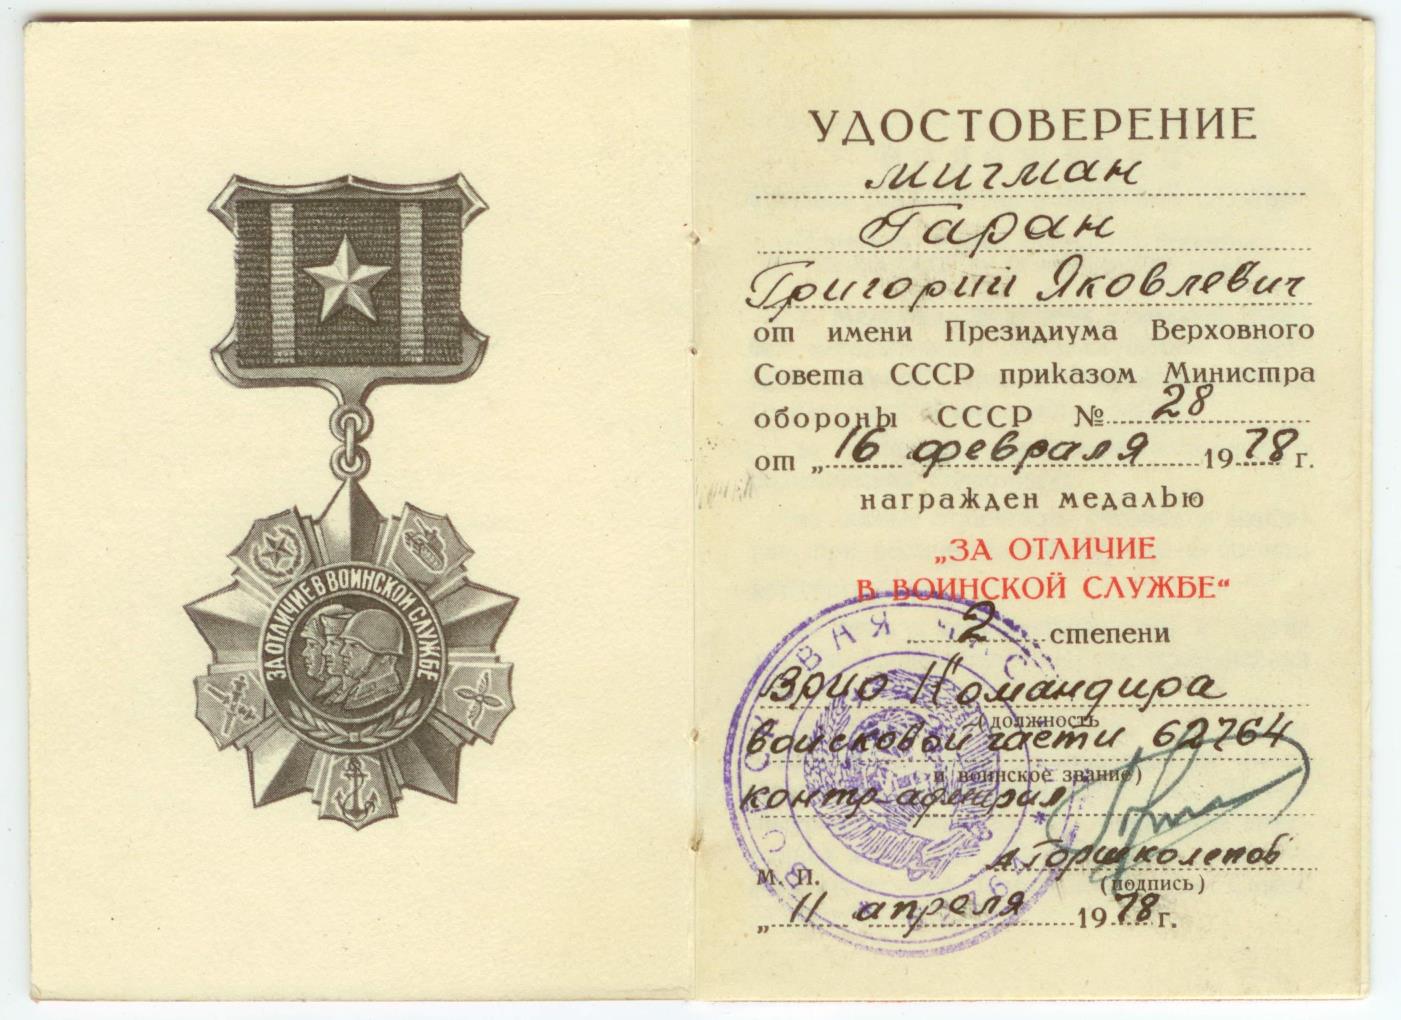 ЗА ОТЛИЧИЕ В ВОИНСКОЙ СЛУЖБЕ
УДОСТОВЕРЕНИЕ
мичман
Гаран
Григорий Яковлевич
от имени Президиума Верховного
Совета СССР приказом Министра
обороны СССР № 28
от „16 февраля 1978 г.
награжден медалью
„ЗА ОТЛИЧИЕ
В ВОИНСКОЙ СЛУЖБЕ“
„2“ степени
Врио Командира
(должность
войсковой части 62764
и воинское звание)
контр-адмирал
А Горшколепов
М. П.
(подпись)
„11 апреля 1978 г.